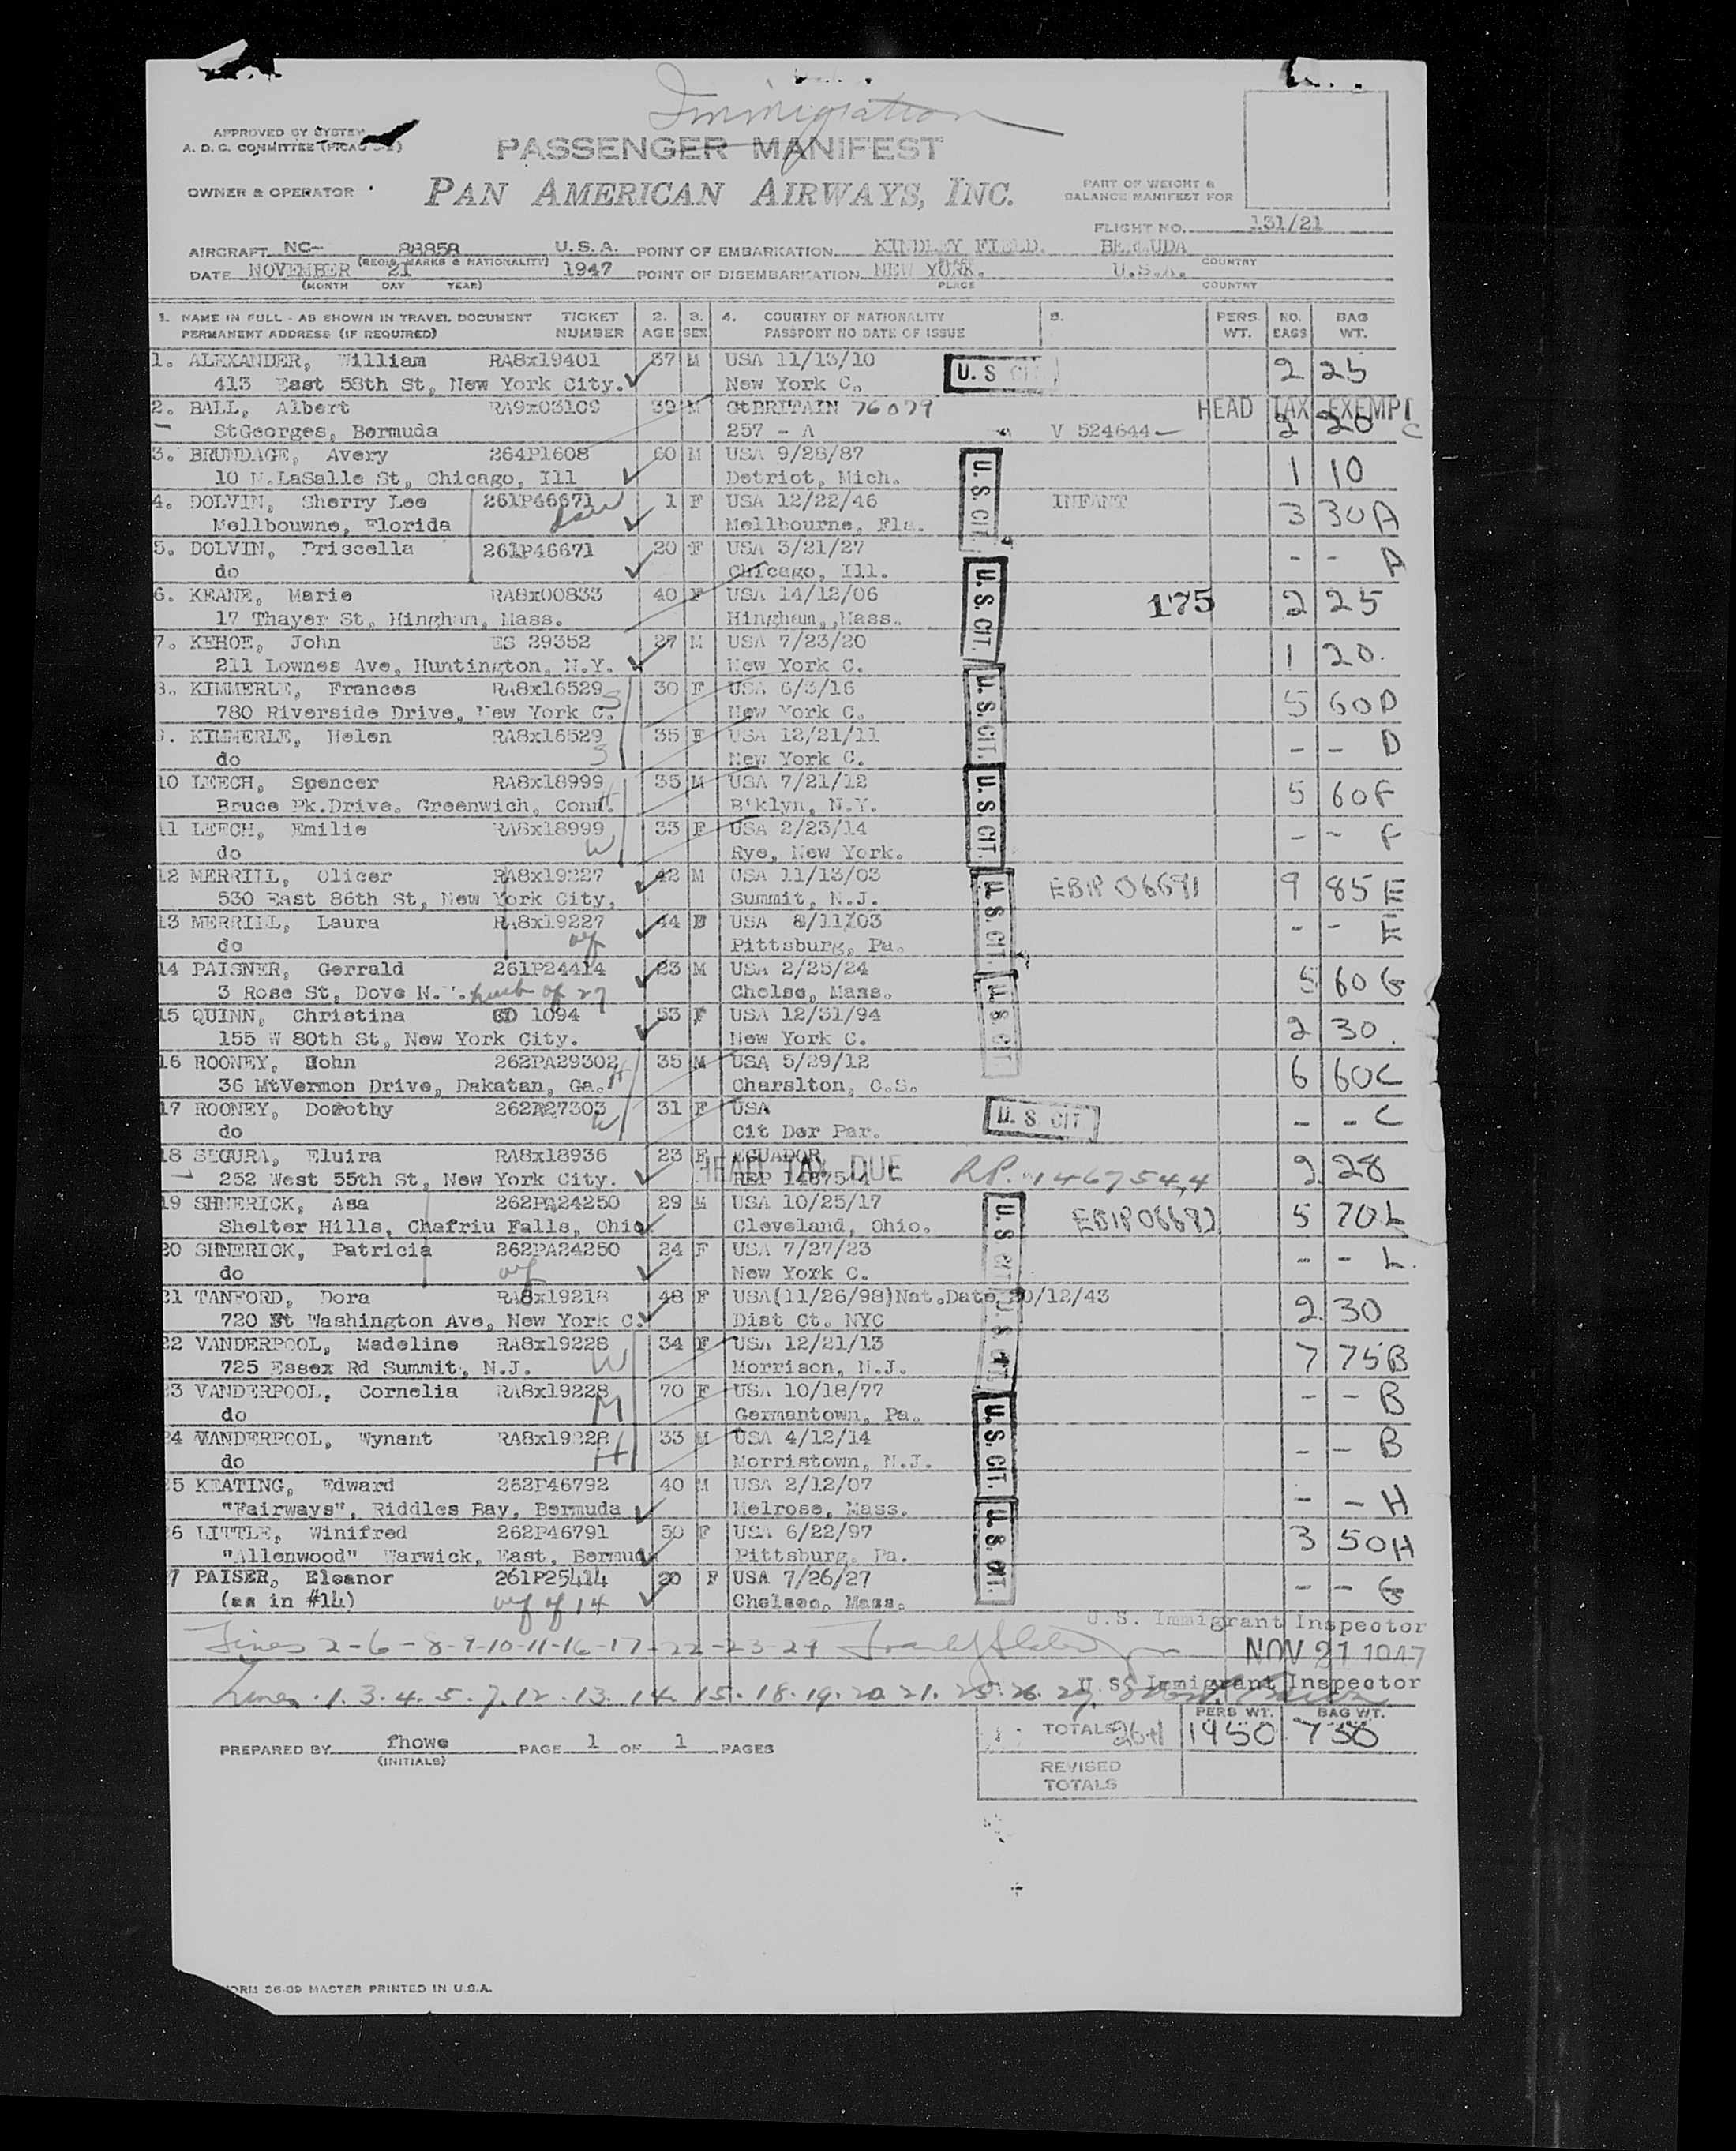 Immigration
APPROVED BY SYSTEM
A. D. C. COMMITTEE
PASSENGER MANIFEST
OWNER & OPERATOR
PAN AMERICAN AIRWAYS, INC.
PART OF WEIGHT &
BALANCE MANIFEST FOR
FLIGHT NO. 131/21
AIRCRAFT NC- 88858 U.S.A. POINT OF EMBARKATION KINDLEY FIELD. BERMUDA
(REGIS. MARKS & NATIONALITY) PLACE COUNTRY
DATE NOVEMBER 21 1947 POINT OF DISEMBARKATION NEW YORK. U.S.A.
(MONTH DAY YEAR) PLACE COUNTRY
1. NAME IN FULL - AS SHOWN IN TRAVEL DOCUMENT TICKET 2. 3. 4. COUNTRY OF NATIONALITY 5. PERS. NO. BAG
PERMANENT ADDRESS (IF REQUIRED) NUMBER AGE SEX PASSPORT NO DATE OF ISSUE WT. BAGS WT.
1. ALEXANDER, William RA8x19401 37 M USA 11/13/10 U. S CIT 2 25
413 East 58th St, New York City. New York C.
2. BALL, Albert RA9x03109 39 M GtBRITAIN 76079 HEAD TAX EXEMPT 2 20 C
StGeorges, Bermuda 257 - A V 524644
3. BRUNDAGE, Avery 264P1608 60 M USA 9/28/87 U. S. CIT. 1 10
10 N.LaSalle St, Chicago, Ill Detriot, Mich.
4. DOLVIN, Sherry Lee 261P46671 1 F USA 12/22/46 INFANT 3 30 A
Mellbouwne, Florida dau Mellbourne, Fla.
5. DOLVIN, Priscella 261P46671 20 F USA 3/21/27 U. S. CIT. - - A
do Chicago, Ill.
6. KEANE, Marie RA8x00833 40 F USA 14/12/06 175 2 25
17 Thayer St, Hingham, Mass. Hingham,,Mass.
7. KEHOE, John ES 29352 27 M USA 7/23/20 1 20.
211 Lownes Ave, Huntington, N.Y. New York C.
8. KIMMERLE, Frances RA8x16529 S 30 F USA 6/3/16 U. S. CIT. 5 60 D
780 Riverside Drive, New York C. New York C.
9. KIMMERLE, Helen RA8x16529 35 F USA 12/21/11 - - D
do S New York C.
10 LEECH, Spencer RA8x18999 H 35 M USA 7/21/12 U. S. CIT. 5 60 F
Bruce Pk.Drive. Greenwich, Conn. B'klyn, N.Y.
11 LEECH, Emilie RA8x18999 33 F USA 2/23/14 - - F
do W Rye, New York.
12 MERRILL, Olicer RA8x19227 42 M USA 11/13/03 U. S. CIT. EBIP 06691 9 85 E
530 East 86th St, New York City, Summit, N.J.
13 MERRILL, Laura RA8x19227 44 F USA 8/11/03 - - E
do wf Pittsburg, Pa.
14 PAISNER, Gerrald 261P24414 23 M USA 2/25/24 U. S. CIT. 5 60 G
3 Rose St, Dove N. . husb of 27 Chelse, Mass.
15 QUINN, Christina GD 1094 53 F USA 12/31/94 2 30.
155 W 80th St, New York City. New York C.
16 ROONEY, John 262PA29302 H 35 M USA 5/29/12 6 60 C
36 MtVermon Drive, Dakatan, Ga. Charslton, C.S.
17 ROONEY, Dorothy 262P27303 31 F USA U. S. CIT - - C
do W Cit Der Par.
18 SEGURA, Eluira RA8x18936 23 F ECUADOR HEAD TAX DUE RP. 1467544 2 28
252 West 55th St, New York City. REP 1467544
19 SHNERICK, Asa 262PA24250 29 M USA 10/25/17 U. S CIT EBIP 06692 5 70 L
Shelter Hills, Chafriu Falls, Ohio Cleveland, Ohio.
20 SHNERICK, Patricia 262PA24250 24 F USA 7/27/23 - - L.
do wf New York C.
21 TANFORD, Dora RA8x19218 48 F USA(11/26/98)Nat.Date 10/12/43 U. S. CIT. 2 30
720 Ft Washington Ave, New York C. Dist Ct. NYC
22 VANDERPOOL, Madeline RA8x19228 34 F USA 12/21/13 7 75 B
725 Essex Rd Summit, N.J. W Morrison, N.J.
23 VANDERPOOL, Cornelia RA8x19228 70 F USA 10/18/77 U. S. CIT. - - B
do M Germantown, Pa.
24 VANDERPOOL, Wynant RA8x19228 33 M USA 4/12/14 - - B
do H Morristown, N.J.
25 KEATING, Edward 262P46792 40 M USA 2/12/07 U. S. CIT. - - H
"Fairways", Riddles Bay, Bermuda Melrose, Mass.
26 LITTLE, Winifred 262P46791 50 F USA 6/22/97 3 50 H
"Allenwood" Warwick, East, Bermuda Pittsburg, Pa.
27 PAISER, Eleanor 261P25414 20 F USA 7/26/27 - - G
(as in #14) wf of 14 Chelsee, Mass.
U.S. Immigrant Inspector
Lines 2-6-8-9-10-11-16-17-22-23-24
NOV 21 1947
U S Immigrant Inspector
Lines 1. 3. 4. 5. 7. 12. 13. 14. 15. 18. 19. 20. 21. 25. 26. 27.
PERS WT. BAG WT.
TOTALS 26+1 1950 730
PREPARED BY fhowe PAGE 1 OF 1 PAGES
(INITIALS)
REVISED
TOTALS
FORM 36-09 MASTER PRINTED IN U.S.A.